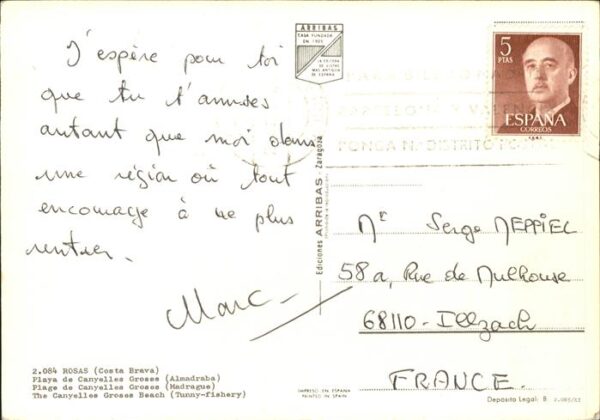 J'espère pour toi
que tu t'amuses
autant que moi dans
une région où tout
encourage à ne plus
rentrer.
Marc
2.084 ROSAS (Costa Brava)
Playa de Canyelles Grosses (Almadraba)
Plage de Canyelles Grosses (Madrague)
The Canyelles Grosses Beach (Tunny-fishery)
ARRIBAS
CASA FUNDADA
EN 1905
LA EDITORA
MAS ANTIGUA
DE ESPAÑA
Ediciones ARRIBAS - Zaragoza
IMPRESO EN ESPAÑA
PRINTED IN SPAIN
5
PTAS
ESPAÑA
CORREOS
BARCELONA Y VALEN
PONGA N.º DISTRITO POSTAL
Mr Serge MEPPIEL
58a, Rue de Mulhouse
68110 - Illzach
FRANCE.
Deposito Legal: B